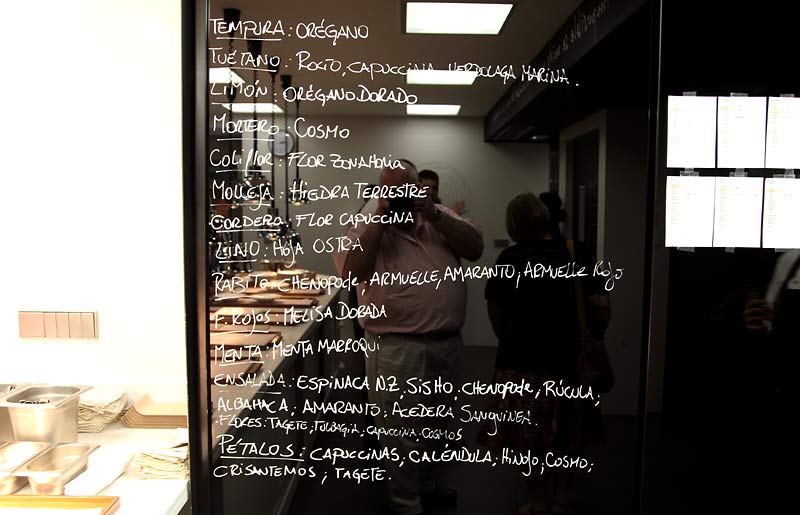 TEMPURA: ORÉGANO
TUÉTANO: ROCÍO, CAPUCCINA, VERDOLAGA MARINA.
LIMÓN: ORÉGANO DORADO
MORTERO: COSMO
COLIFLOR: FLOR ZANAHORIA
MOLLEJA: HIEDRA TERRESTRE
CORDERO: FLOR CAPUCCINA
HOJA OSTRA
RABITO: CHENOPODE, ARMUELLE, AMARANTO, ARMUELLE ROJO
F. ROJOS: MELISA DORADA
MENTA: MENTA MARROQUI
ENSALADA: ESPINACA N.Z, SISHO, CHENOPODE, RÚCULA,
ALBAHACA, AMARANTO, ACEDERA SANGUINEA.
FLORES: TAGETE, TULBAGIA, CAPUCCINA, COSMOS
PÉTALOS: CAPUCCINAS, CALÉNDULA, HINOJO, COSMO,
CRISANTEMOS, TAGETE.